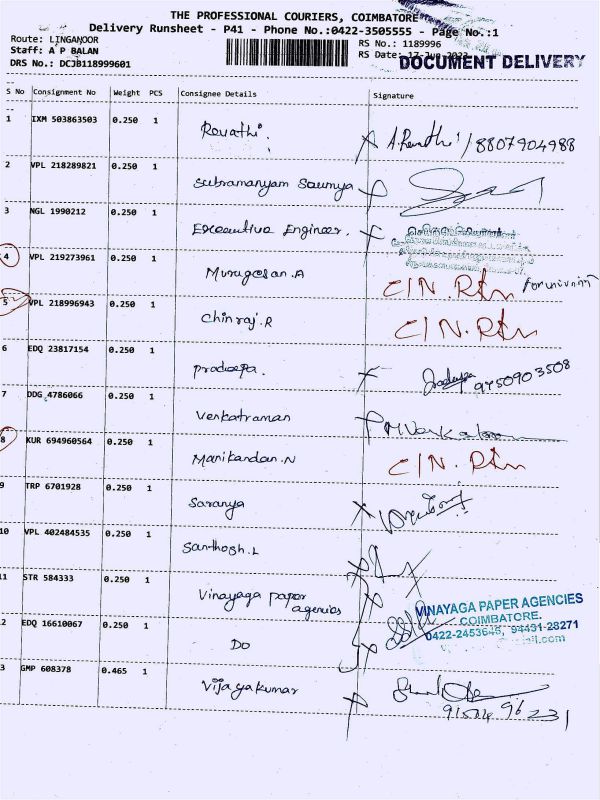 THE PROFESSIONAL COURIERS, COIMBATORE
Delivery Runsheet - P41 - Phone No.:0422-3505555 - Page No.:1
Route: LINGANOOR
RS No.: 1189996
Staff: A P BALAN
RS Date: 17-Jun-2023
DRS No.: DCJB118999601
DOCUMENT DELIVERY
S No Consignment No Weight PCS Consignee Details Signature
1 IXM 503863503 0.250 1 Revathi. A.Revathi / 8807904988
2 VPL 218289821 0.250 1 Subramanyam Saumya
3 NGL 1990212 0.250 1 Executive Engineer.
4 VPL 219273961 0.250 1 Murugesan.A C/N. Rtn
5 VPL 218996943 0.250 1 Chinraj.R C/N. Rtn
6 EDQ 23817154 0.250 1 pradeepa. 9750903508
7 DDG 4786066 0.250 1 Venkatraman
8 KUR 694960564 0.250 1 Manikandan.N C/N. Rtn
9 TRP 6701928 0.250 1 Saranya
10 VPL 402484535 0.250 1 Santhosh.L
11 STR 584333 0.250 1 Vinayaga paper agencies
VINAYAGA PAPER AGENCIES
COIMBATORE.
12 EDQ 16610067 0.250 1 DO
0422-2453646, 94431-28271
13 GMP 608378 0.465 1 Vijayakumar